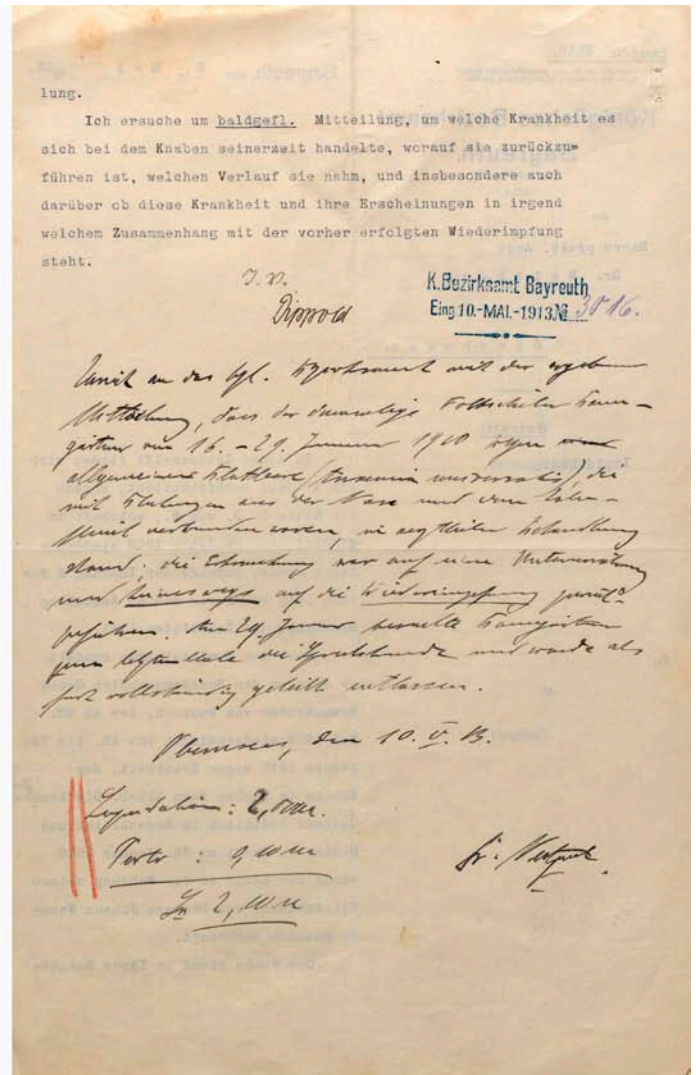 lung.
Ich ersuche um baldgefl. Mitteilung, um welche Krankheit es
sich bei dem Knaben seinerzeit handelte, worauf sie zurückzu=
führen ist, welchen Verlauf sie nahm, und insbesondere auch
darüber ob diese Krankheit und ihre Erscheinungen in irgend
welchem Zusammenhang mit der vorher erfolgten Wiederimpfung
steht.
J. V.
Dippold
K. Bezirksamt Bayreuth
Eing. 10.-MAI.-1913.№ 3016.
an das kgl. Bezirksamt mit der ergebenen
Mitteilung, dass der damalige Volksschüler Baum-
gärtner vom 16. - 29. Januar 1910 wegen
allgemeiner Blutleere (Anaemia universalis), die
mit Blutungen aus der Nase und dem Zahn-
fleisch verbunden waren, in aerztlicher Behandlung
stand; die Erkrankung war auf eine Unterernährung
und keineswegs auf die Wiederimpfung zurück-
zuführen. Am 29. Januar besuchte Baumgärtner
zum letzten Male die Sprechstunde und wurde als
fast vollständig geheilt entlassen.
Obernsees, den 10. V. 13.
Liquidation: 2,00 M.
Porto : 0,10 M
Sa 2,10 M
Dr.